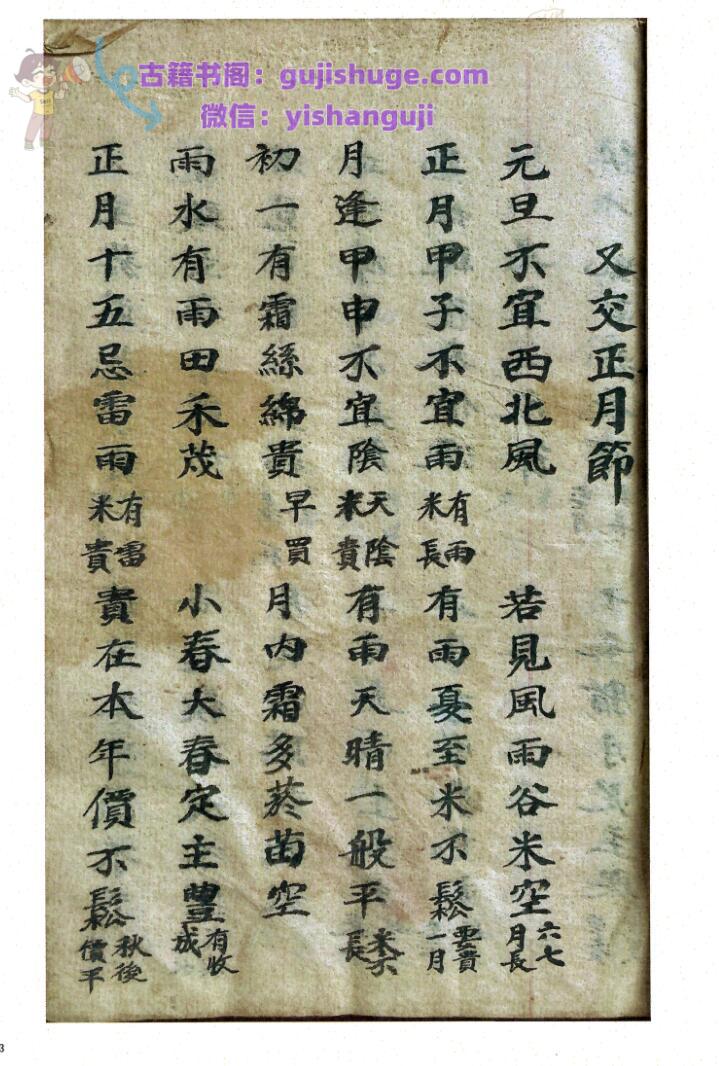 古籍书阁：gujishuge.com
微信：yishanguji
又交正月節
元旦不宜西北風 若見風雨谷米空 六七月長
正月甲子不宜雨 有雨米長 有雨夏至米不鬆 要貴一月
月逢甲申不宜陰 天陰米貴 有雨天晴一般平 米不長
初一有霜絲綿貴 早買 月内霜多菸苗空
雨水有雨田禾茂 小春大春定主豐 有收成
正月十五忌雷雨 有雷米貴 貴在本年價不鬆 秋後價平
3